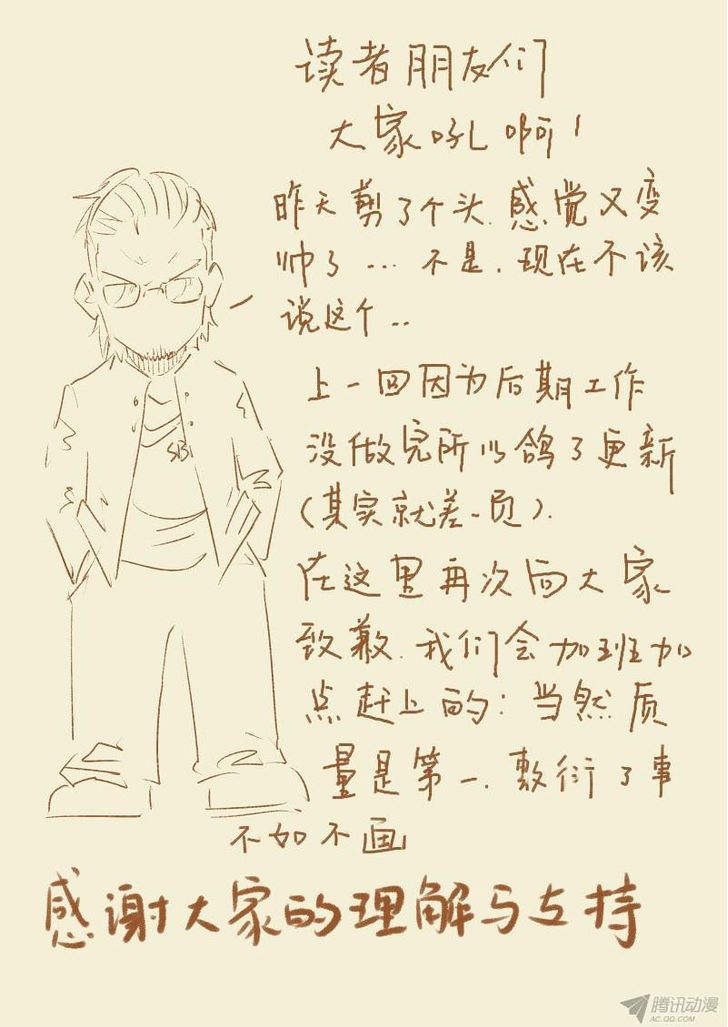 读者朋友们
大家吼啊！
昨天剪了个头.感觉又变
帅了...不是.现在不该
说这个..
上一回因为后期工作
没做完所以鸽了更新
(其实就差一页).
在这里再次向大家
致歉.我们会加班加
点赶上的:当然质
量是第一.敷衍了事
不如不画
感谢大家的理解与支持
SB
腾讯动漫
AC.QQ.COM